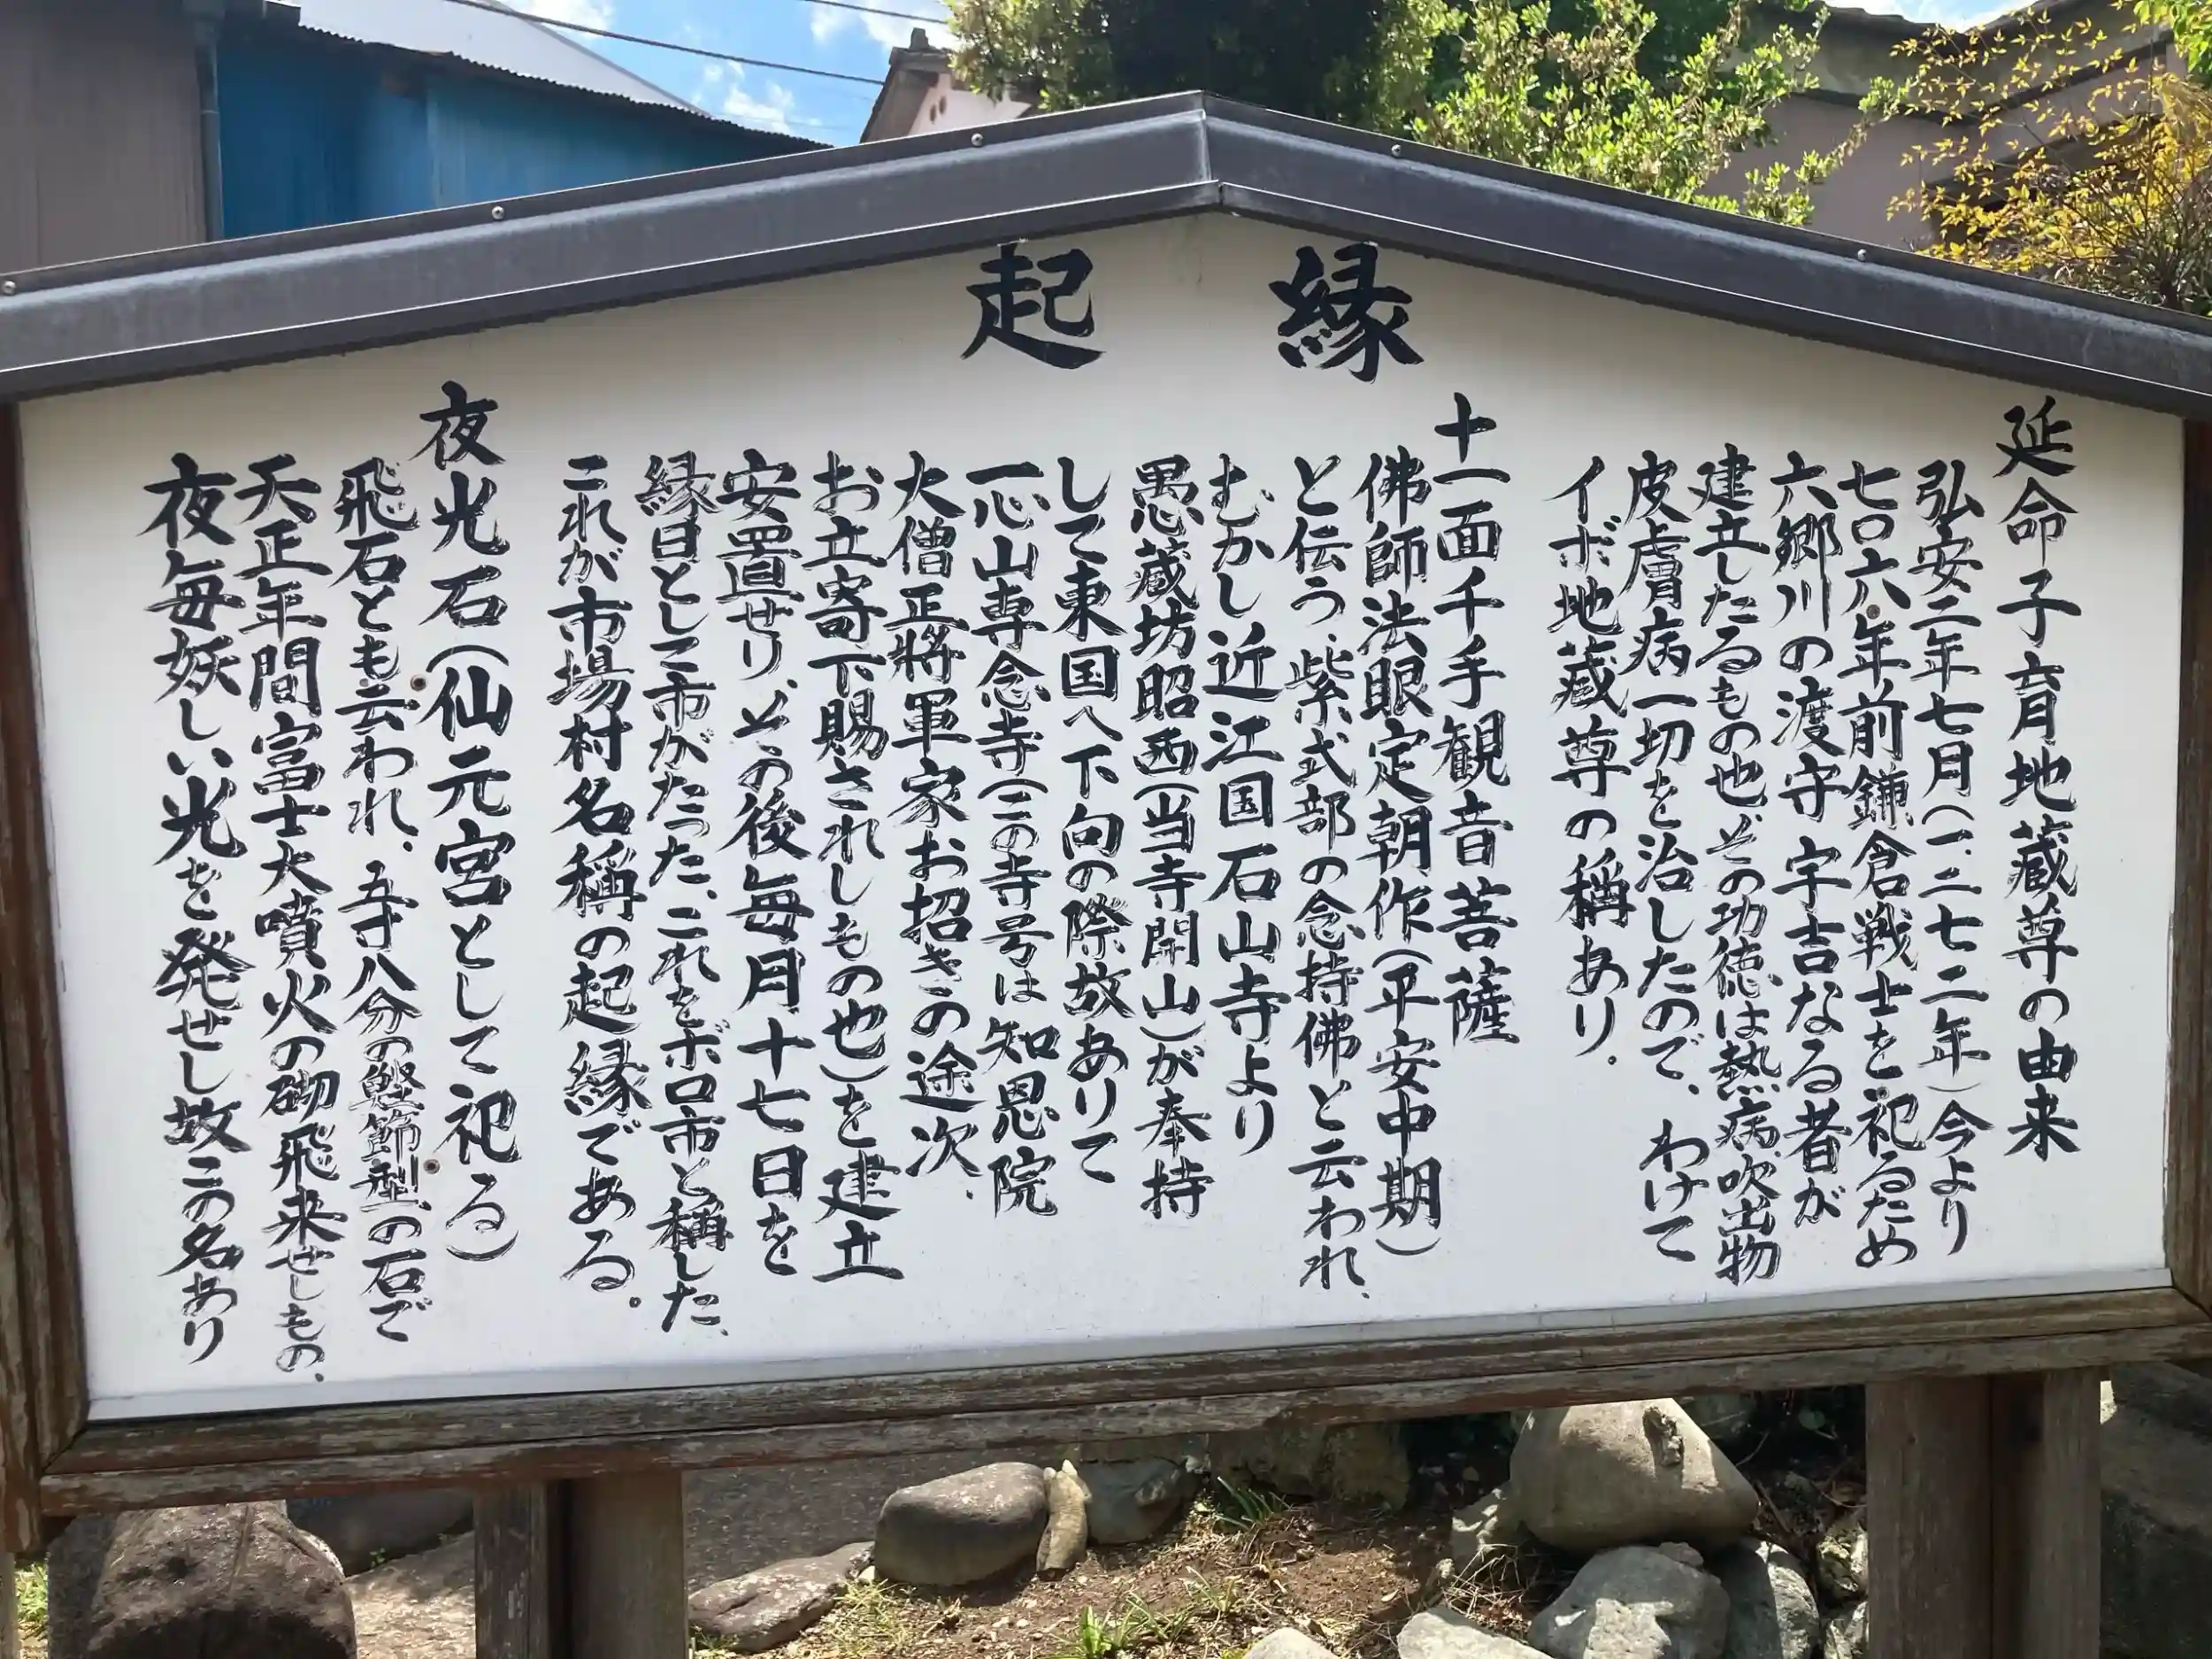 縁起
延命子育地蔵尊の由来
弘安二年七月(一、二七二年)今より
七〇六年前鎌倉戦士を祀るため
六郷川の渡守宇吉なる者が
建立したるもの也、その功徳は熱病、吹出物
皮膚病一切を治したので、わけて
イボ地蔵尊の稱あり。
十一面千手観音菩薩
佛師法眼定朝作(平安中期)
と伝う、紫式部の念持佛と云われ、
むかし近江国石山寺より
愚蔵坊昭西(当寺開山)が奉持
して東国へ下向の際故ありて
一心山専念寺(この寺号は知恩院
大僧正將軍家お招きの途次、
お立寄下賜されしもの也)を建立
安置せり、その後毎月十七日を
縁日として市がたった、これをボロ市と稱した、
これが市場村名稱の起縁である。
夜光石(仙元宮として祀る)
飛石とも云われ、五寸八分の鰹節型の石で
天正年間富士大噴火の砌飛来せしもの、
夜毎妖しい光を発せし故この名あり